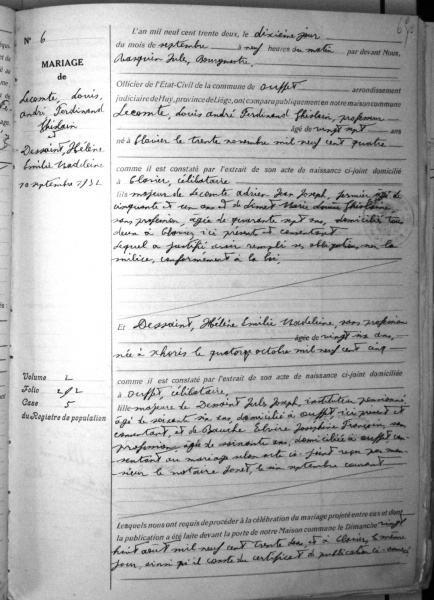 N° 6
MARIAGE
de
Lecomte, Louis,
André Ferdinand
Ghislain
et
Dessaint, Hélène
Emilie Madeleine
10 septembre 1932
Volume 2
Folio 202
Case 5
du Registre de population
L'an mil neuf cent trente deux, le dixième jour
du mois de septembre à neuf heures du matin par devant Nous,
Jules, Bourgmestre,
Officier de l'Etat-Civil de la commune de Ouffet arrondissement
judiciaire de Huy, province de Liége, ont comparu publiquement en notre maison commune
Lecomte, Louis André Ferdinand Ghislain, professeur
âgé de vingt sept ans
né à Clavier le trente novembre mil neuf cent quatre
comme il est constaté par l'extrait de son acte de naissance ci-joint domicilié
à Clavier, célibataire,
fils majeur de Lecomte Adrien Jean Joseph, fermier, âgé de
cinquante et un ans et de Marie Ghislaine,
sans profession, âgée de quarante sept ans, domiciliés tous
deux à Clavier, ici présents et consentants
Lequel a justifié avoir rempli ses obligations sur la
milice, conformément à la loi.
Et Dessaint, Hélène Emilie Madeleine, sans profession
âgée de vingt six ans,
née à Xhoris le quatorze octobre mil neuf cent cinq
comme il est constaté par l'extrait de son acte de naissance ci-joint domiciliée
à Ouffet, célibataire,
fille majeure de Dessaint Jules Joseph, instituteur pensionné
âgé de soixante six ans, domicilié à Ouffet, ici présent et
consentant, et de Elvire Josephine Françoise, sans
profession, âgée de soixante ans, domiciliée à Ouffet con-
sentant au mariage selon acte ci-joint reçu par mon-
sieur le notaire Jonet, le six septembre courant
Lesquels nous ont requis de procéder à la célébration du mariage projeté entre eux et dont
la publication a été faite devant la porte de notre Maison commune le Dimanche vingt
huit août mil neuf cent trente deux, et à Clavier, le même
jour, ainsi qu'il conste du certificat de publication ci-annexé